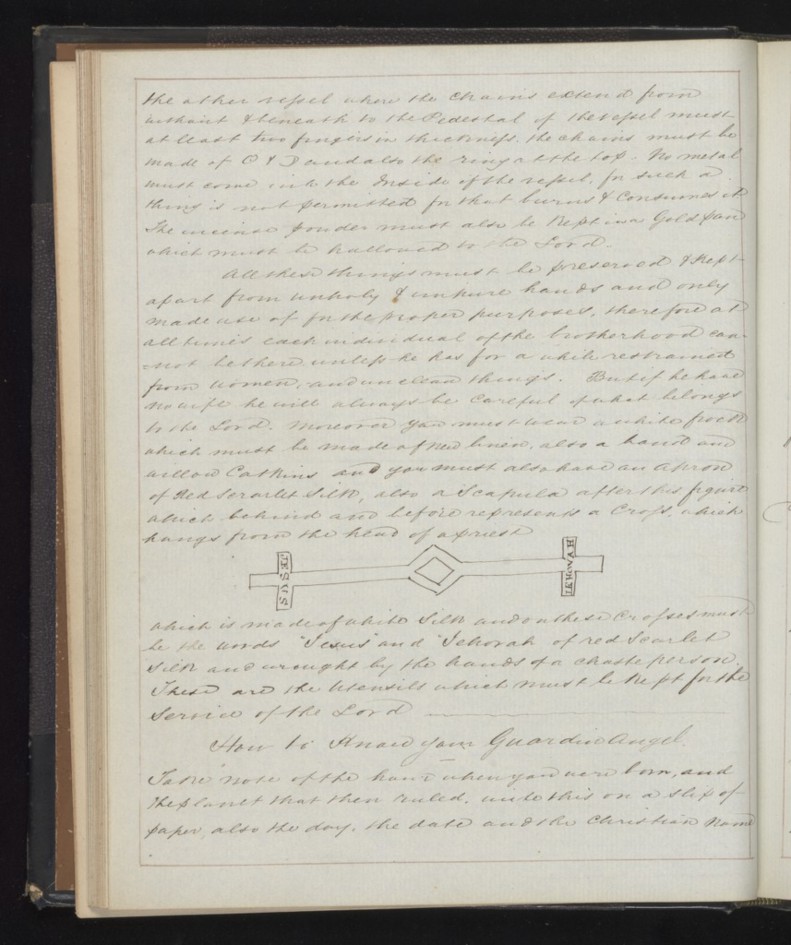 the other vessel where the chains extend from
without & beneath to the Pedestal of the vessel must
at least two fingers in thickness, the chains must be
made of O & D and also the ring at the top. No metal
must come into the Inside of the vessel, for such a
thing is not permitted for that burns & Consumes it
The incense powder must also be Kept in a Gold pan
which must be hallowed to the Lord.
All these things must be preserved & Kept
apart from unholy & impure hands and only
made use of for the proper purposes, therefore at
all times each individual of the brotherhood can-
=not be there unless he has for a while restrained
from women, and unclean things. But if he have
no wife he will always be careful of what belongs
to the Lord. Moreover you must wear a white frock
which must be made of new linen, also a band and
willow Catkins and you must also have an Apron
of Red Scarlet Silk, also a Scapula after this figure
which behind and before represents a Cross, which
hangs from the head of a priest
JESUS
JEHOVAH
which is made of white Silk and on these Crosses must
be the words "Jesus" and "Jehovah of red Scarlet
Silk and wrought by the hands of a chaste person.
These are the Utensils which must be Kept for the
Service of the Lord
How to Know your Guardian Angel.
Take note of the hour when you were born, and
the planet that then ruled, write this on a slip of
paper, also the day, the date and the Christian Name